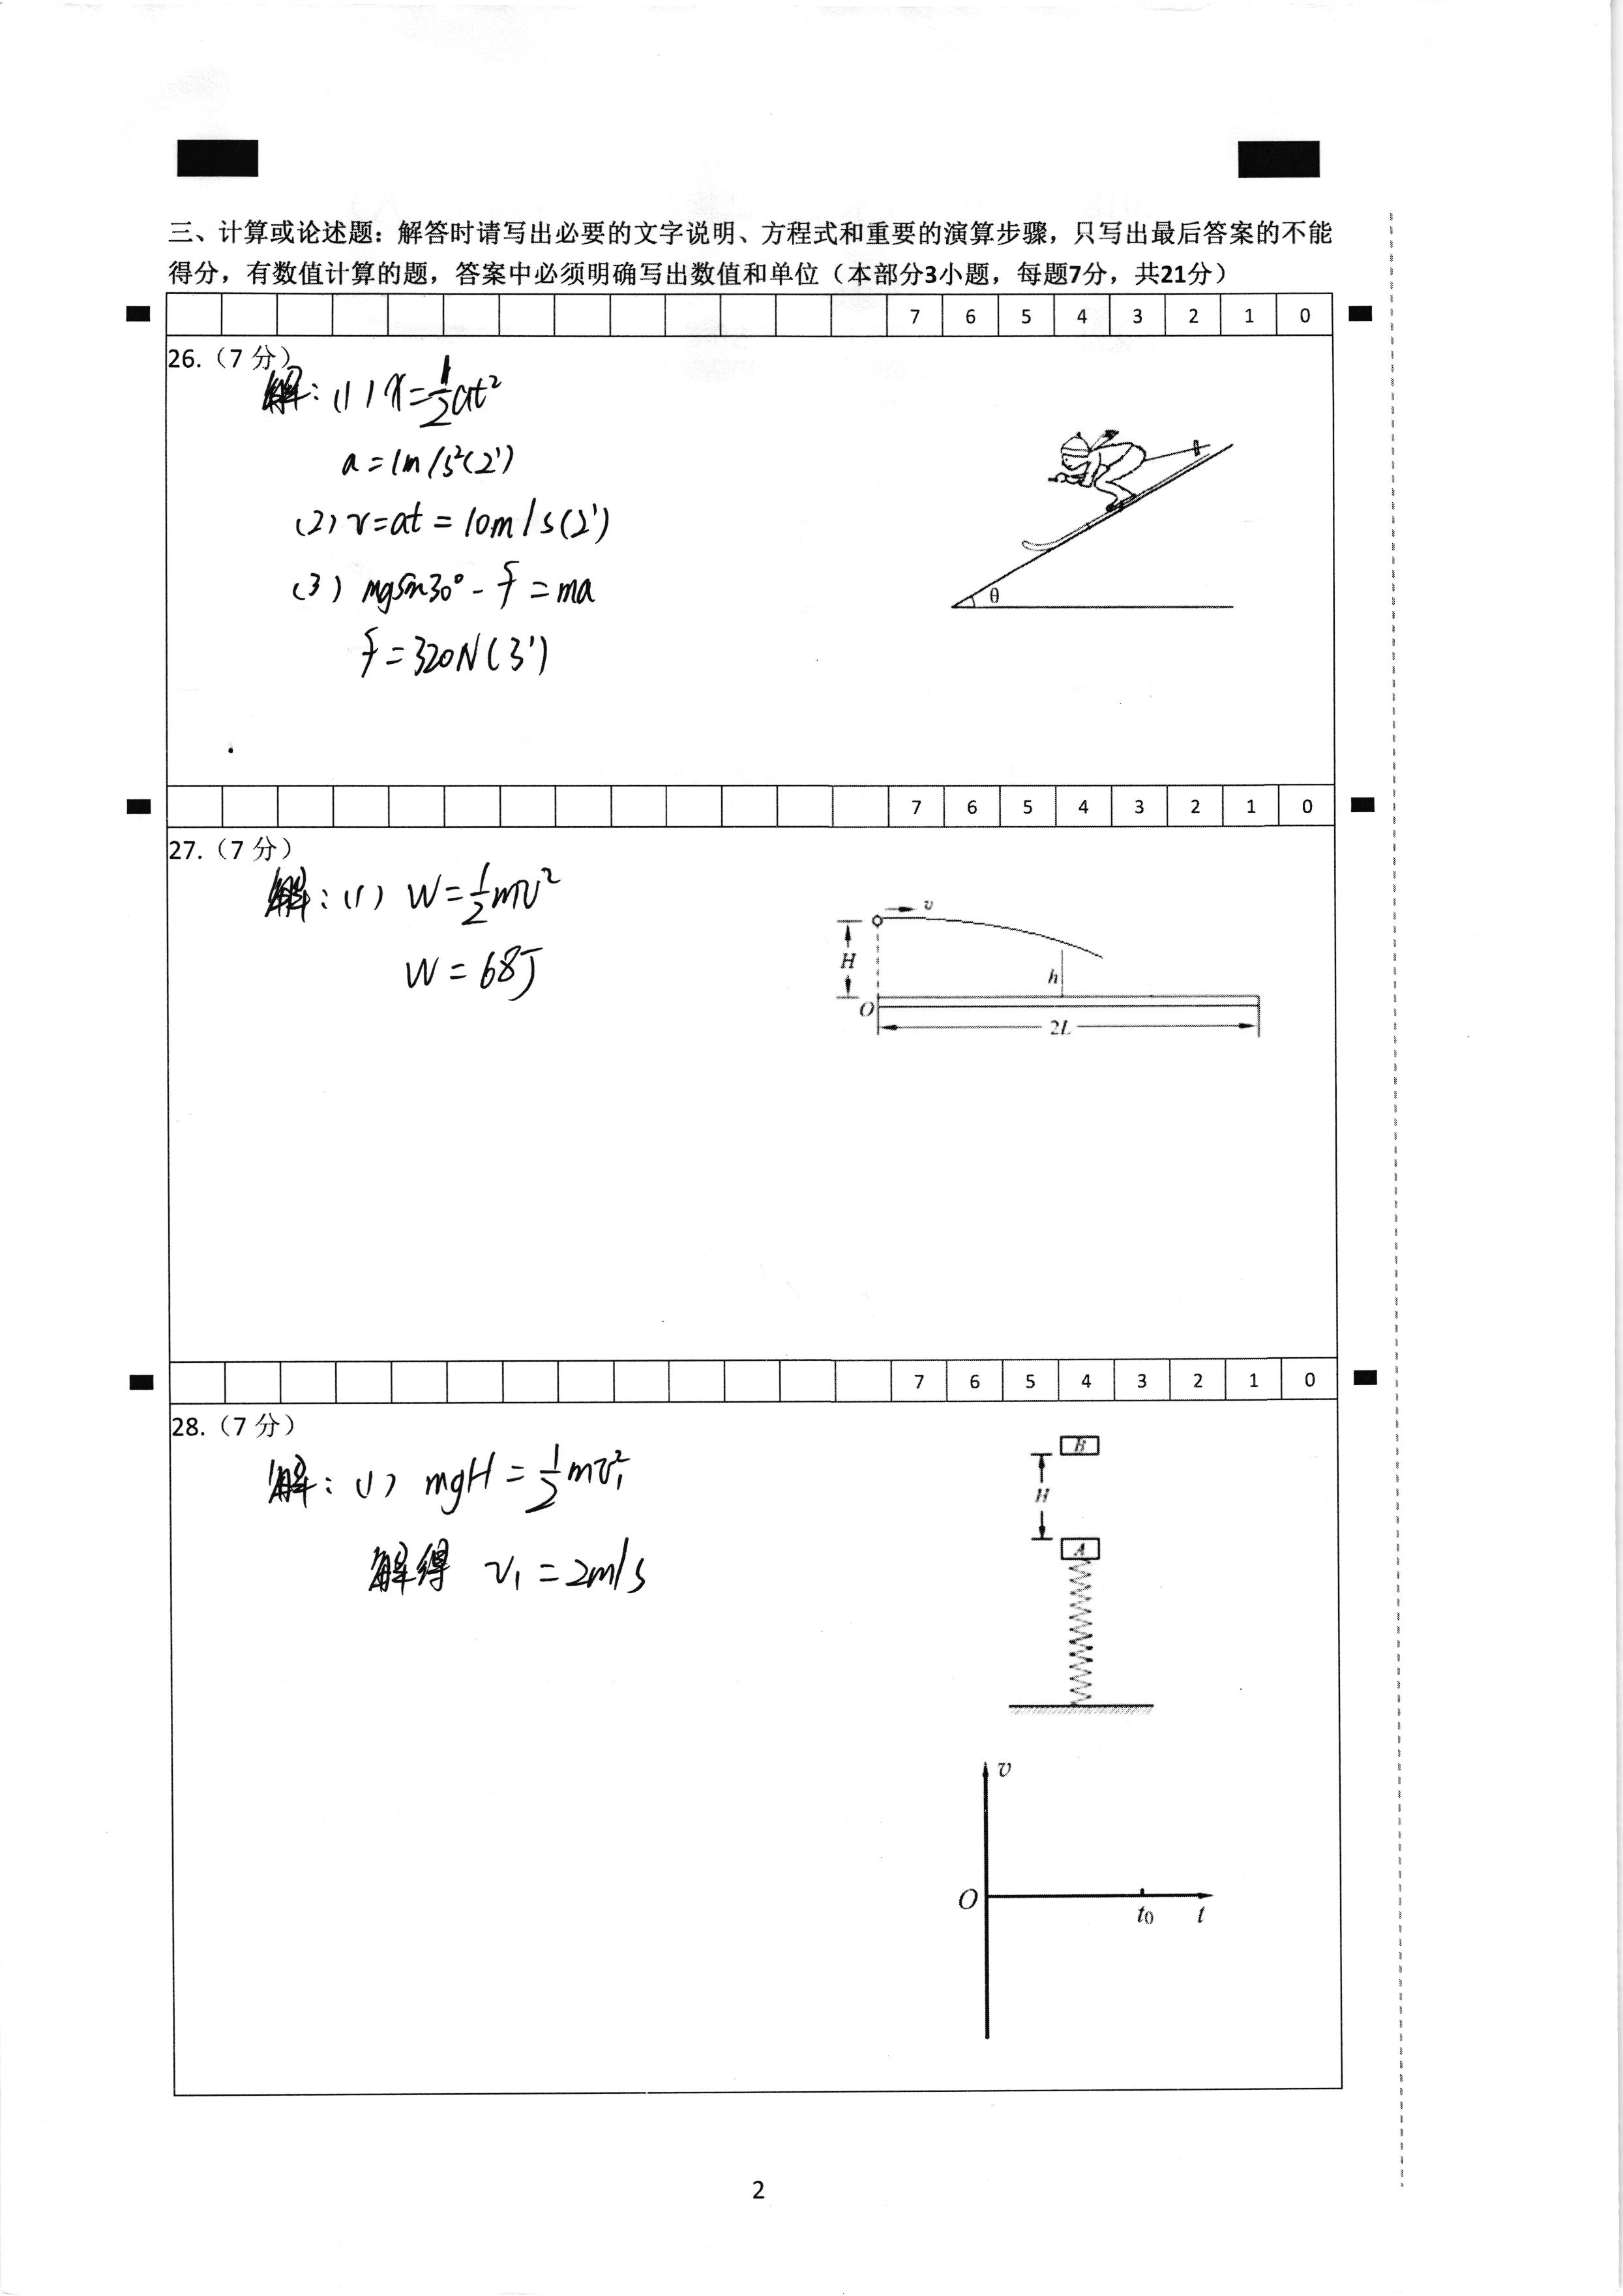 三、计算或论述题：解答时请写出必要的文字说明、方程式和重要的演算步骤，只写出最后答案的不能
得分，有数值计算的题，答案中必须明确写出数值和单位（本部分3小题，每题7分，共21分）
7 6 5 4 3 2 1 0
26.（7 分）
解：(1) x=½at²
a=1m/s²(2')
(2) v=at=10m/s(2')
(3) mgsin30°-f=ma
f=320N(3')
θ
7 6 5 4 3 2 1 0
27.（7 分）
解：(1) W=½mv²
W=68J
v
H
h
O
2L
7 6 5 4 3 2 1 0
28.（7 分）
解：(1) mgH=½mv₁²
解得 v₁=2m/s
B
H
A
v
O
t₀ t
2